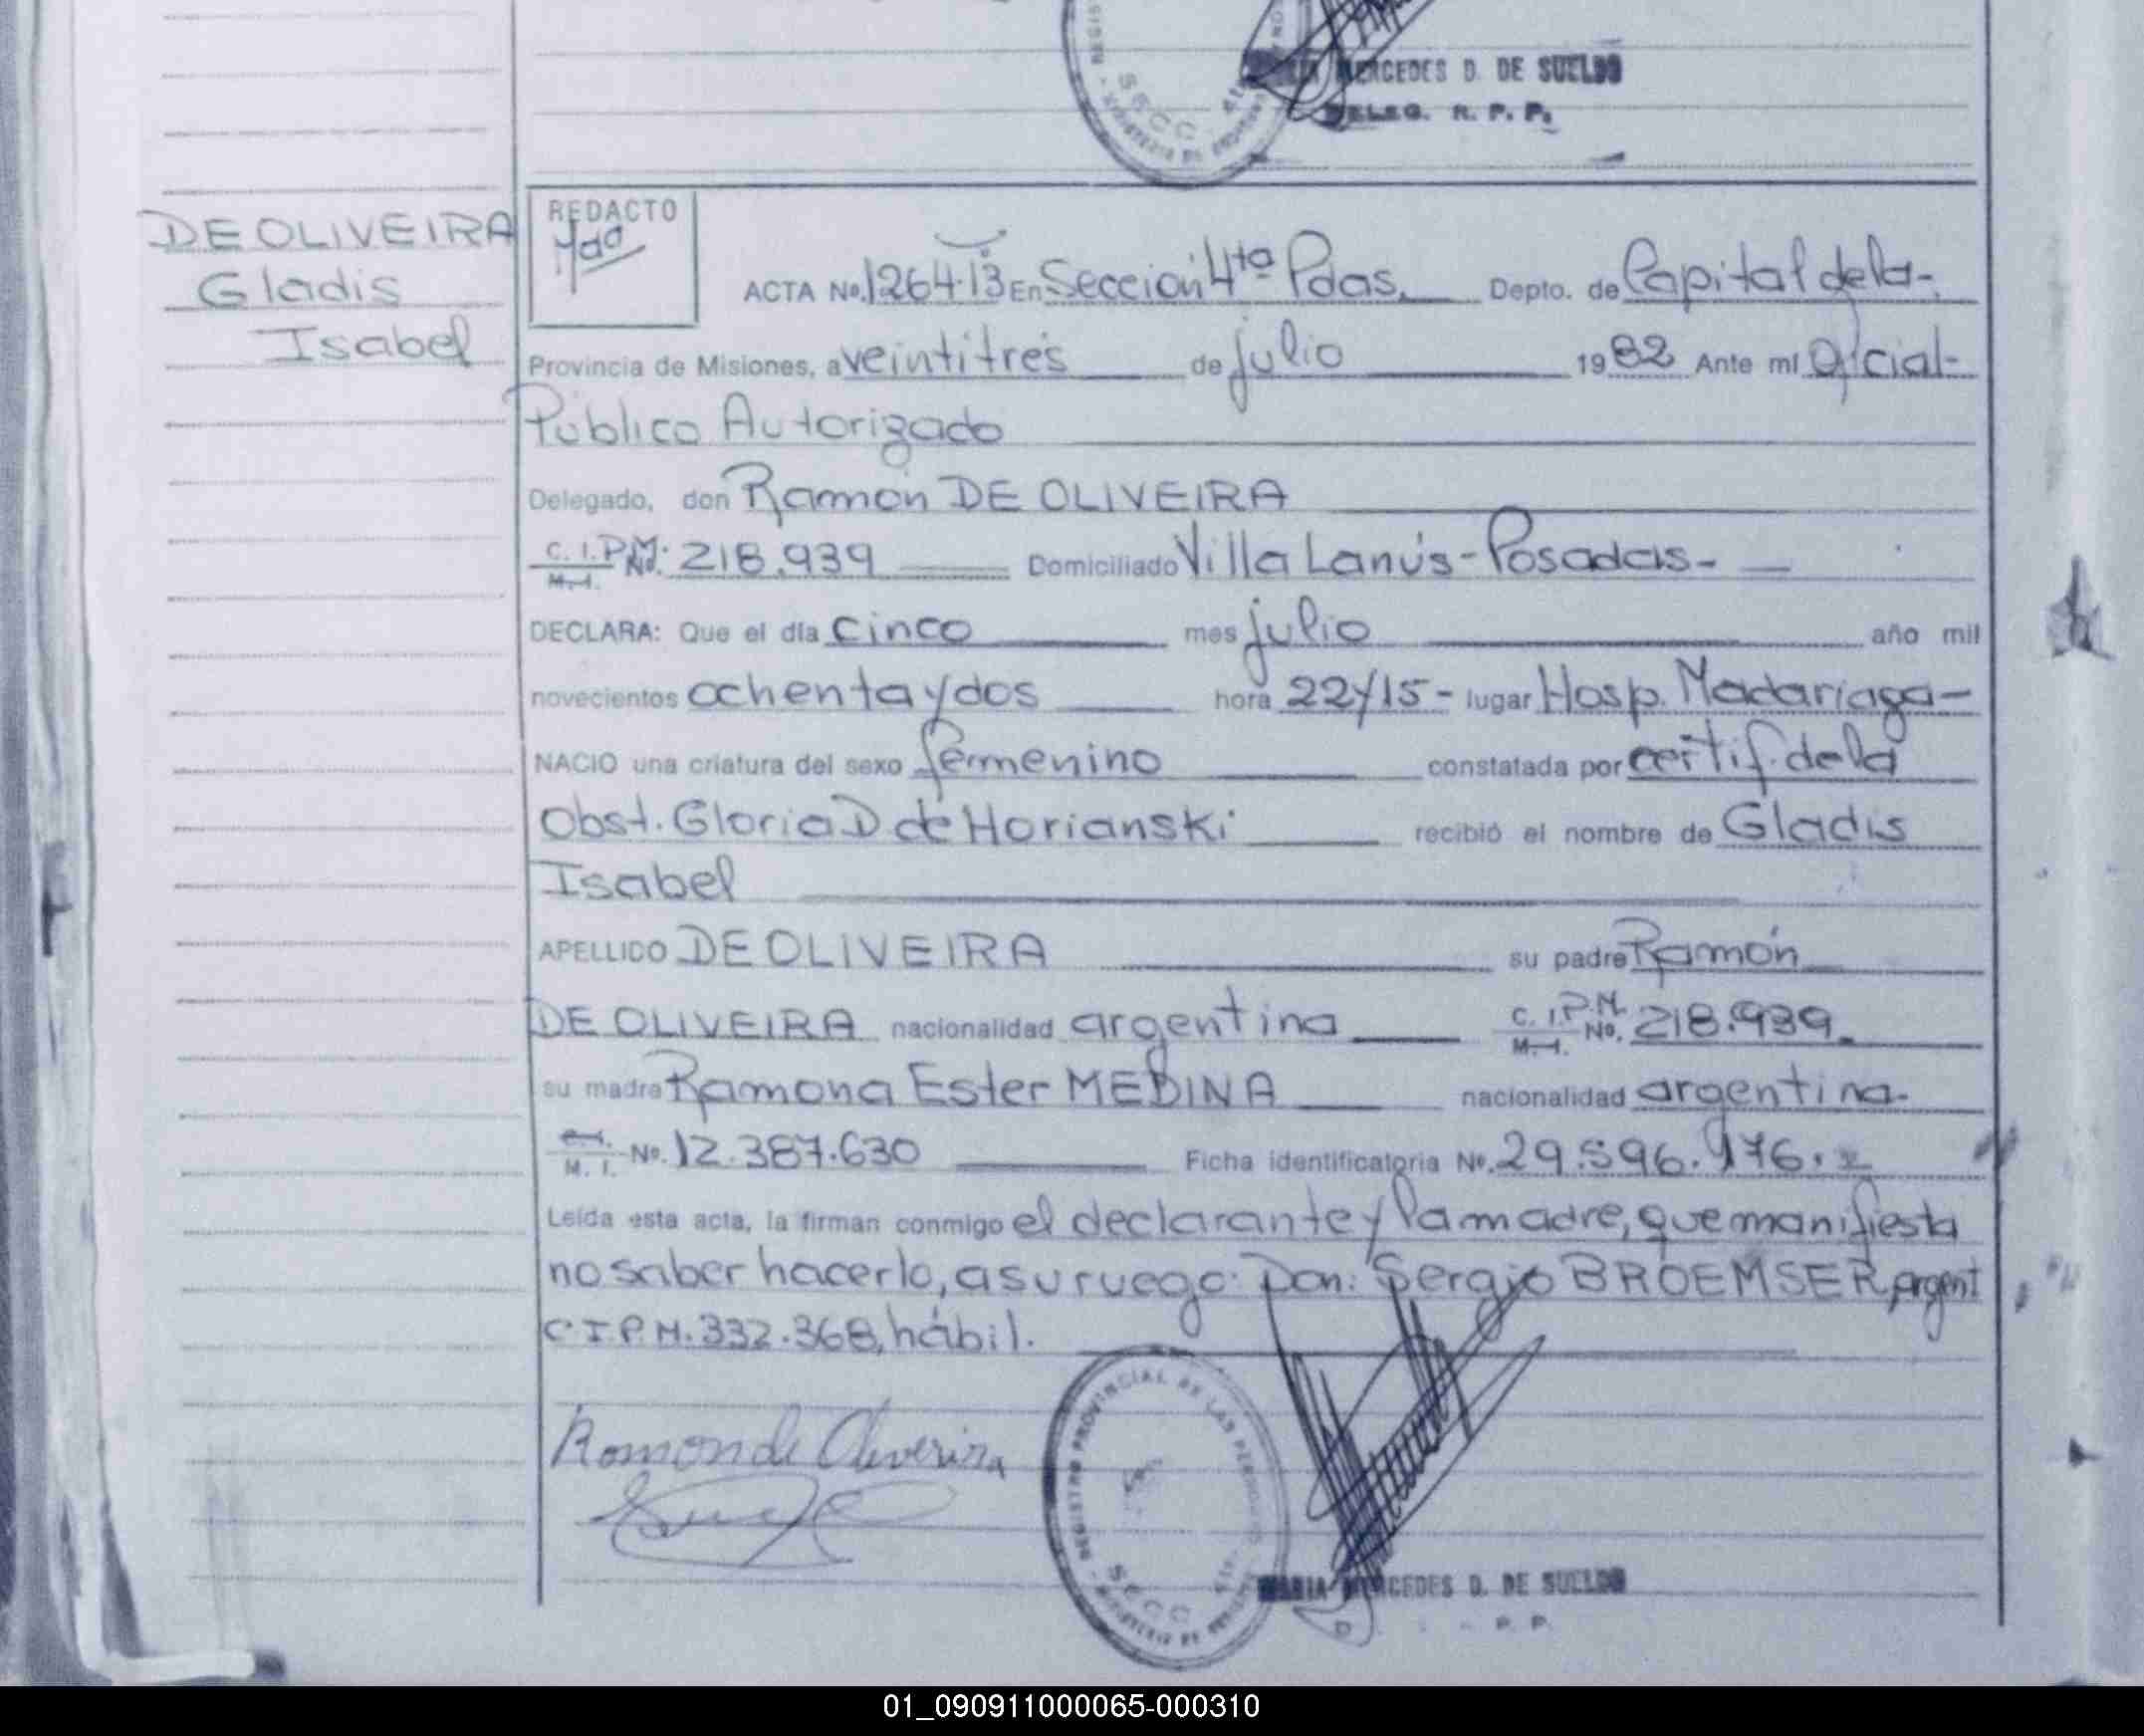 MERCEDES D. DE SUELDO
DELEG. R. P. P.
DE OLIVEIRA
Gladis
Isabel
REDACTO
ACTA No. 1264-T°13 En Sección 4ta Pdas. Depto. de Capital de la-
Provincia de Misiones, a veintitrés de julio 1982 Ante mí Oficial-
Público Autorizado
Delegado, don Ramón DE OLIVEIRA
C. I. P.M. No. 218.939 Domiciliado Villa Lanús-Posadas-
M. I.
DECLARA: Que el día cinco mes julio año mil
novecientos ochenta y dos hora 22y15- lugar Hosp. Madariaga-
NACIO una criatura del sexo femenino constatada por certif. de la
Obst. Gloria D de Horianski recibió el nombre de Gladis
Isabel
APELLIDO DE OLIVEIRA su padre Ramón
DE OLIVEIRA nacionalidad argentina C. I. P.M. No. 218.939
M. I.
su madre Ramona Ester MEDINA nacionalidad argentina-
C. I. M. I. No. 12.387.630 Ficha identificatoria No. 29.596.976.
Leída esta acta, la firman conmigo el declarante y la madre, que manifiesta
no saber hacerlo, a su ruego: Don: Sergio BROEMSER, argent
C.I.P.M. 332.368, hábil.
Ramon de Oliverira
REGISTRO PROVINCIAL DE LAS PERSONAS
SECC 4ta.
MARIA MERCEDES D. DE SUELDO
P. P.
01_090911000065-000310